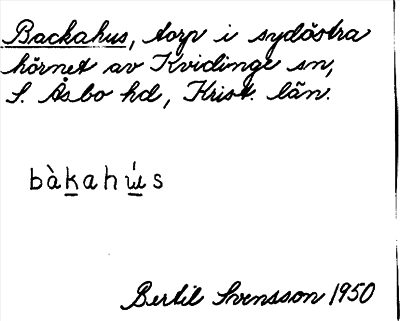 Backahus, torp i sydöstra
hörnet av Kvidinge sn,
S. Åsbo hd, Krist. län.
bàkahẃs
Bertil Svensson 1950